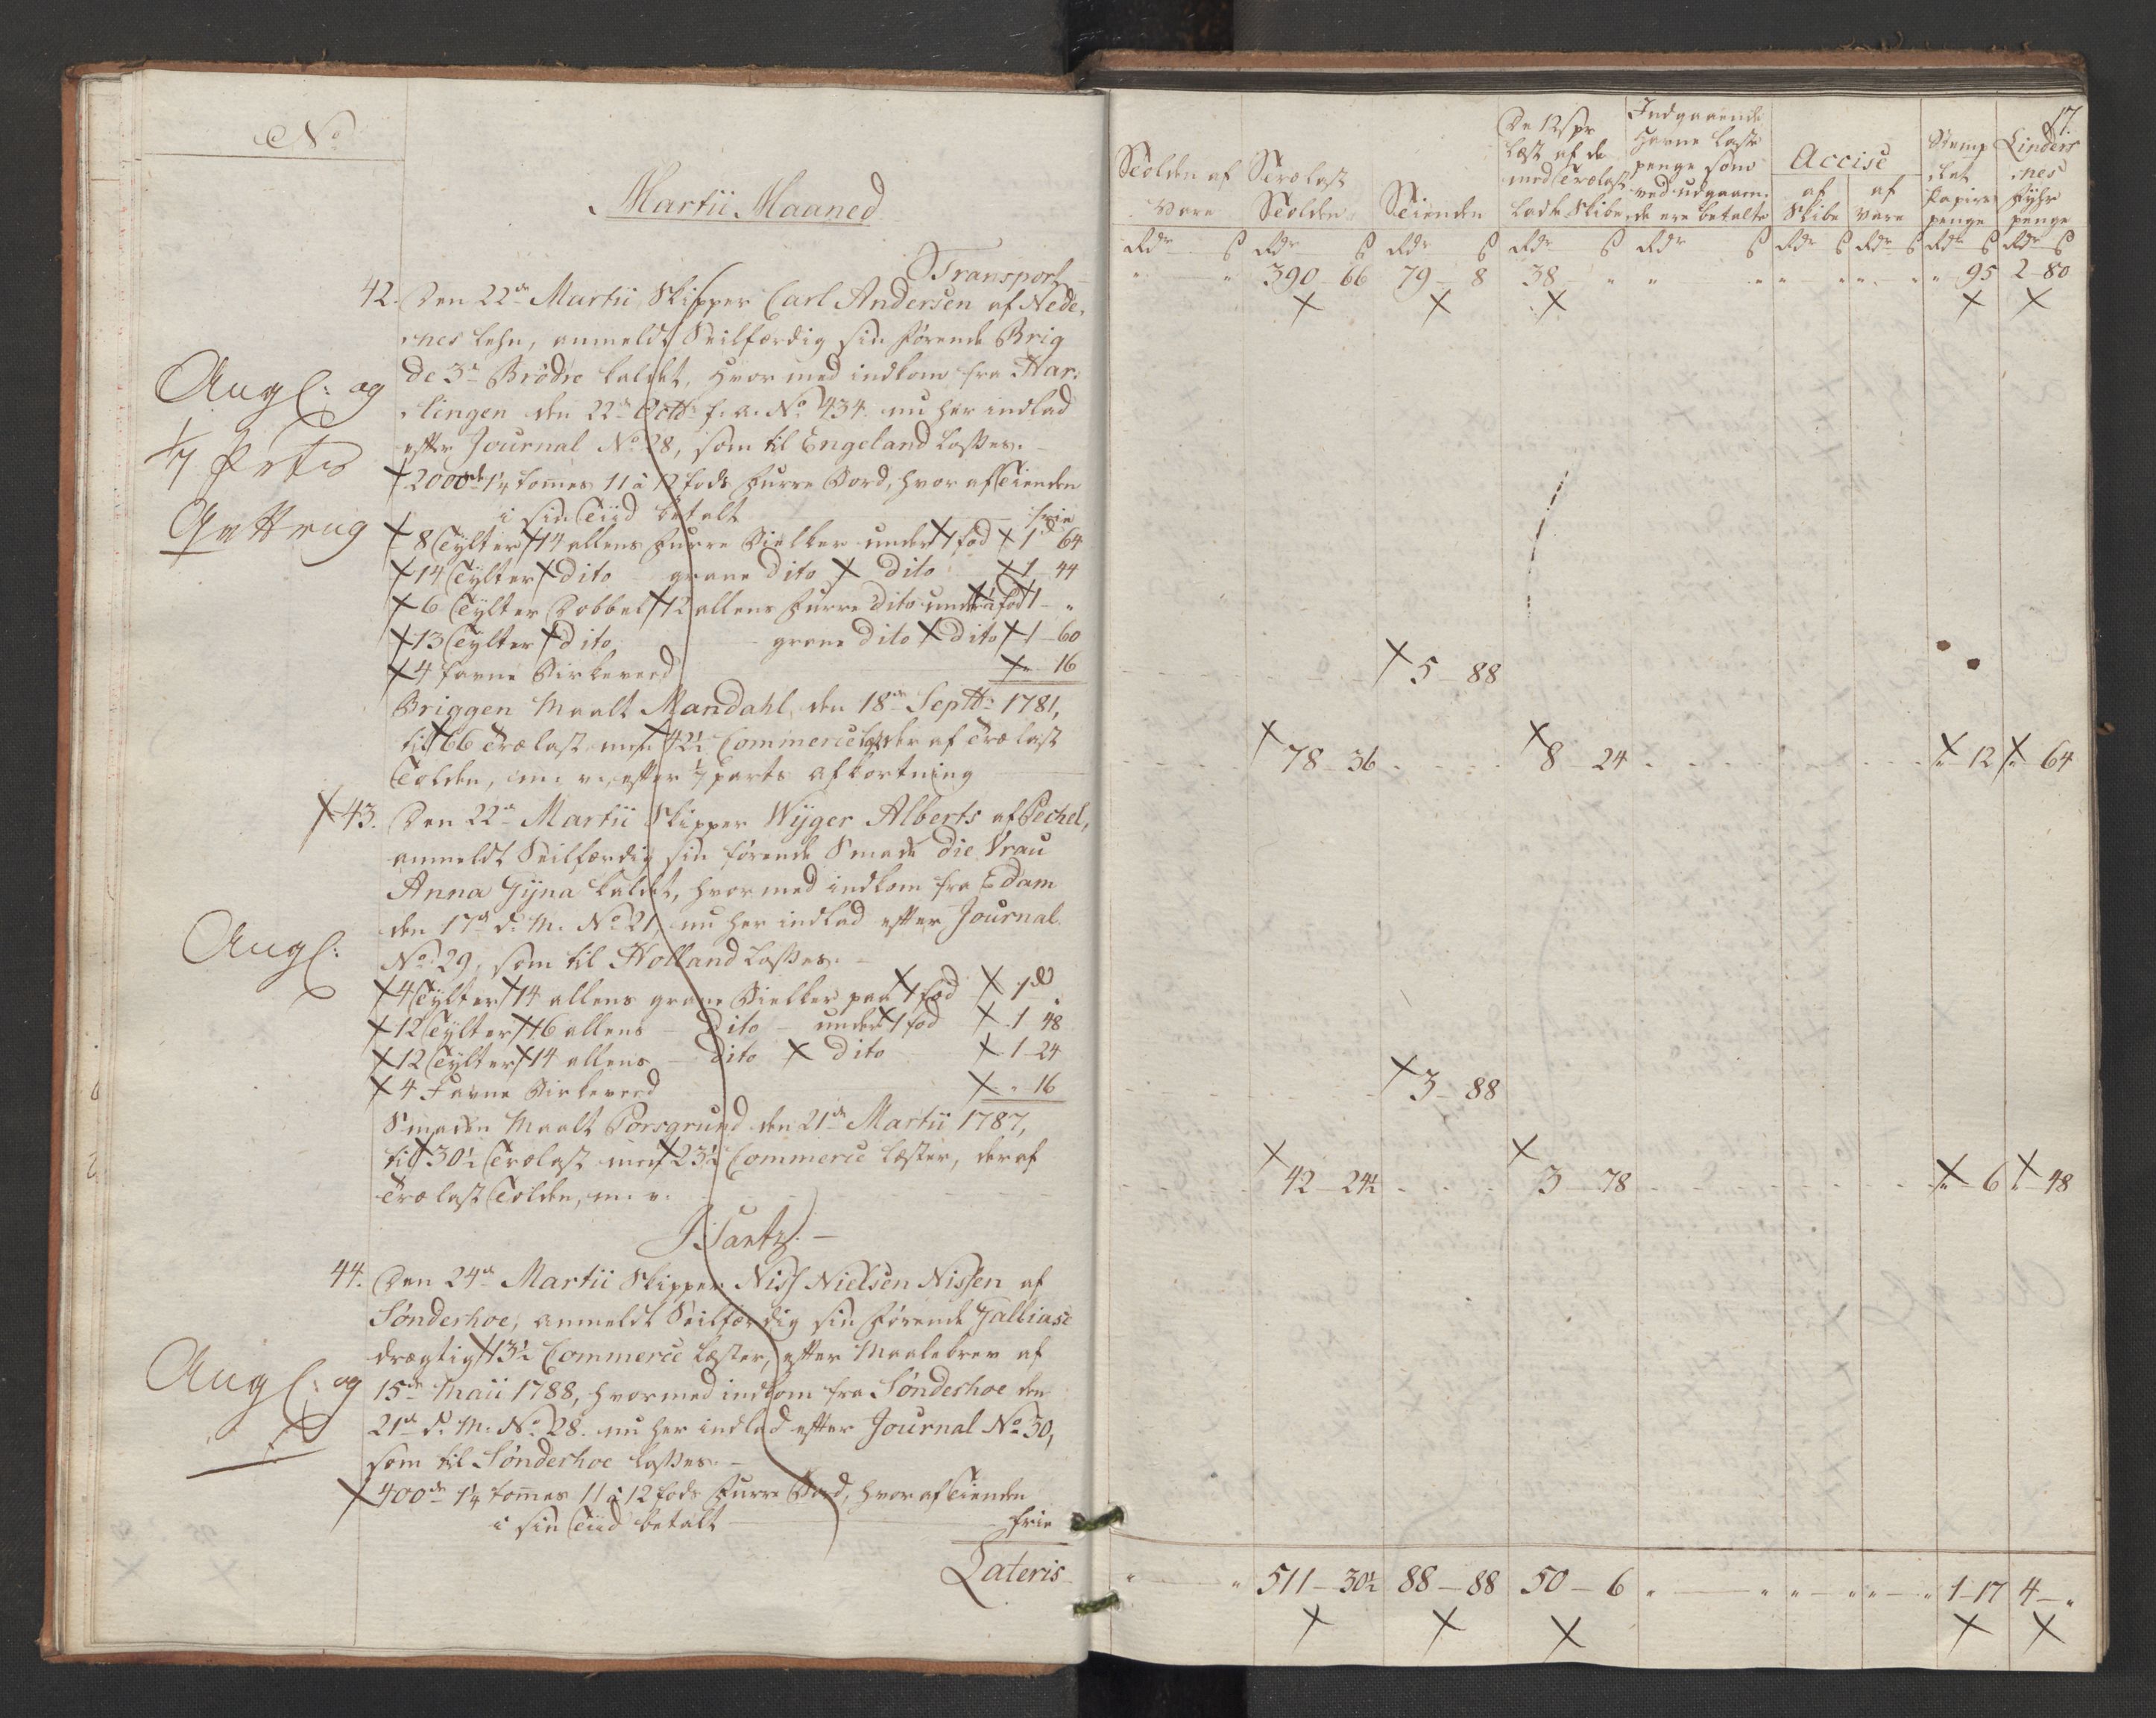 No
Martii Maaned
Transport
42. Den 22de Martii Skipper Carl Andersen af Nede-
nes Lehn, anmeldt Seilfærdig sin førende Brig
De 3de Brødre kaldet, hvormed indkom fra Har-
lingen den 22de Octb: f. a. No 434. nu her indlad
efter Journal No 28, som til Engeland losses.
Angl: og
1/7 parts
2000de 1¼ tommes 11 à 12 fods Furre Bord, hvoraf Tienden
i sin Tiid betalt frie
8 Tylter 14 allens Furre Bielker under 1 fod 1 d 64
14 Tylter dito grane dito dito 1 44
6 Tylter Dobbel 12 allens Furre dito under 1 fod 1 – "
13 Tylter dito grane dito dito 1 – 60
4 favne Birkeveed " 16
Briggen Maalt Mandahl den 18de Septb: 1781,
til 66 Trælast 42½ Commerce Læster af Trælast
Tolden, m. v., efter 1/7 parts afkortning
43. Den 22de Martii Skipper Wijger Alberts af Pechel,
anmeldt Seilfærdig sin førende Smak Die Vrau
Anna Gijna kaldet, hvormed indkom fra Edam
den 17de d. M. No 21, nu her indlad efter Journal
No 29, som til Holland losses.
Angl:
4 Tylter 14 allens grane Bielker paa 1 fod 1 d "
12 Tylter 16 allens – dito – under 1 fod 1 48
12 Tylter 14 allens – dito dito 1 – 24
4 Favne Birkeveed " 16
Smaken Maalt Porsgrund den 21de Martii 1787,
til 30½ Trælast 23½ Commerce Læster, deraf
Trælast Tolden, m. v.
44. Den 24de Martii Skipper Niss Nielsen Nissen af
Sønderhoe, anmeldt Seilfærdig sin førende Galliase
drægtig 13½ Commerce Læster, efter Maalebrev af
15de Maii 1788, hvormed indkom fra Sønderhoe den
21de d. M. No 28. nu her indlad efter Journal No 30,
som til Sønderhoe losses. –
Angl: og
400de 1¼ tommes 11 à 12 fods Furre Bord, hvoraf Tienden
i sin Tiid betalt frie
Lateris
17.
Tolden af Trælast
Vare Tolden Tienden
De 12 s pr
Læst af de
med Trælast
ladte Skibe
Indgaaende
Havne Laste
penge som
ved udgaaen-
de ere betalte
Accise
af Skibe af Vare
Stemp-
let
Papirs
penge
Linders
nes
Fyhr
penge
Rdr s Rdr s Rdr s Rdr s Rdr s Rdr s Rdr s Rdr s Rdr s
" " 390 – 66 79 – 8 38 " " " " " " " " 95 2 – 80
5 – 88
78 – 36 8 – 24 " – 12 " – 64
3 – 88
42 – 24½ 3 – 78 " – 6 " – 48
" " 511 – 30½ 88 – 88 50 – 6 " " " " " " 1 – 17 4 – "